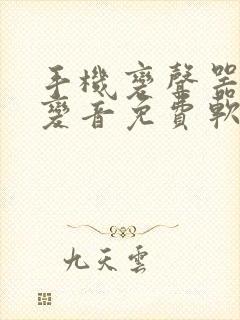 手機变聲器
變音免費軟
九天雲